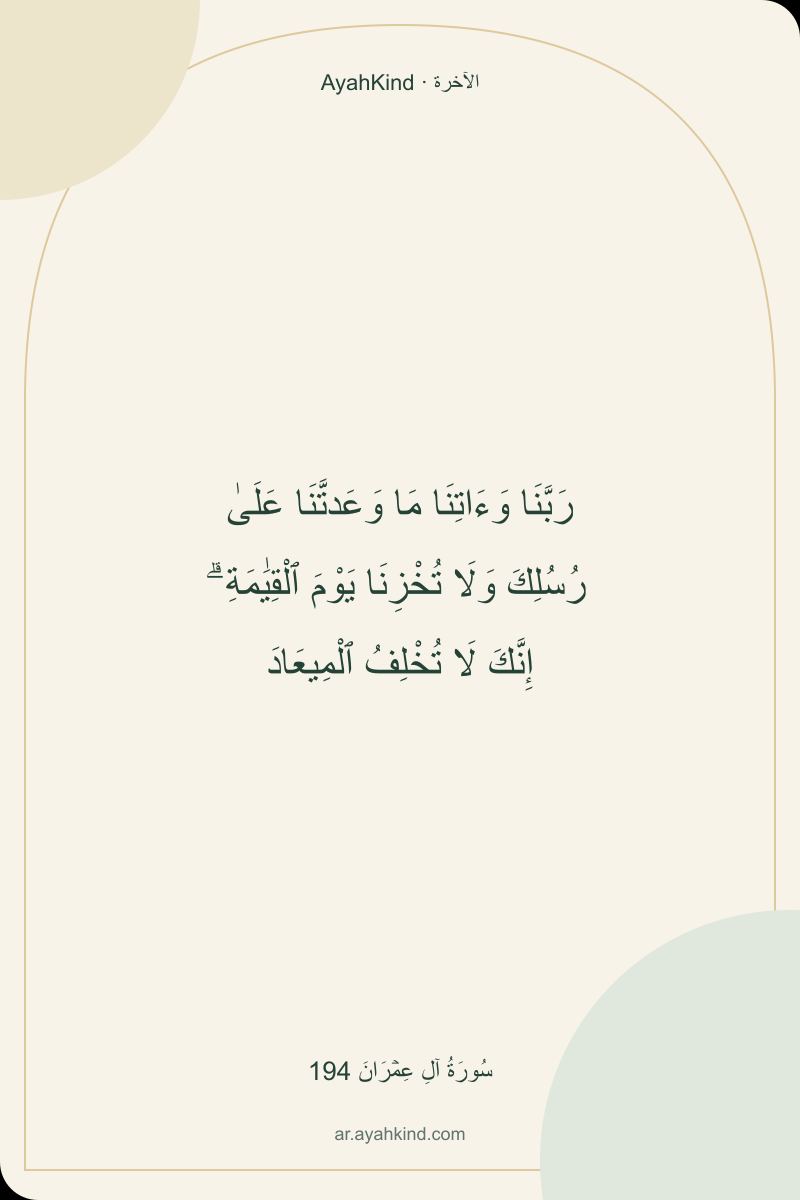 AyahKind · الآخرة
رَبَّنَا وَءَاتِنَا مَا وَعَدتَّنَا عَلَىٰ
رُسُلِكَ وَلَا تُخْزِنَا يَوْمَ ٱلْقِيَٰمَةِ ۗ
إِنَّكَ لَا تُخْلِفُ ٱلْمِيعَادَ
سُورَةُ آلِ عِمۡرَانَ 194
ar.ayahkind.com